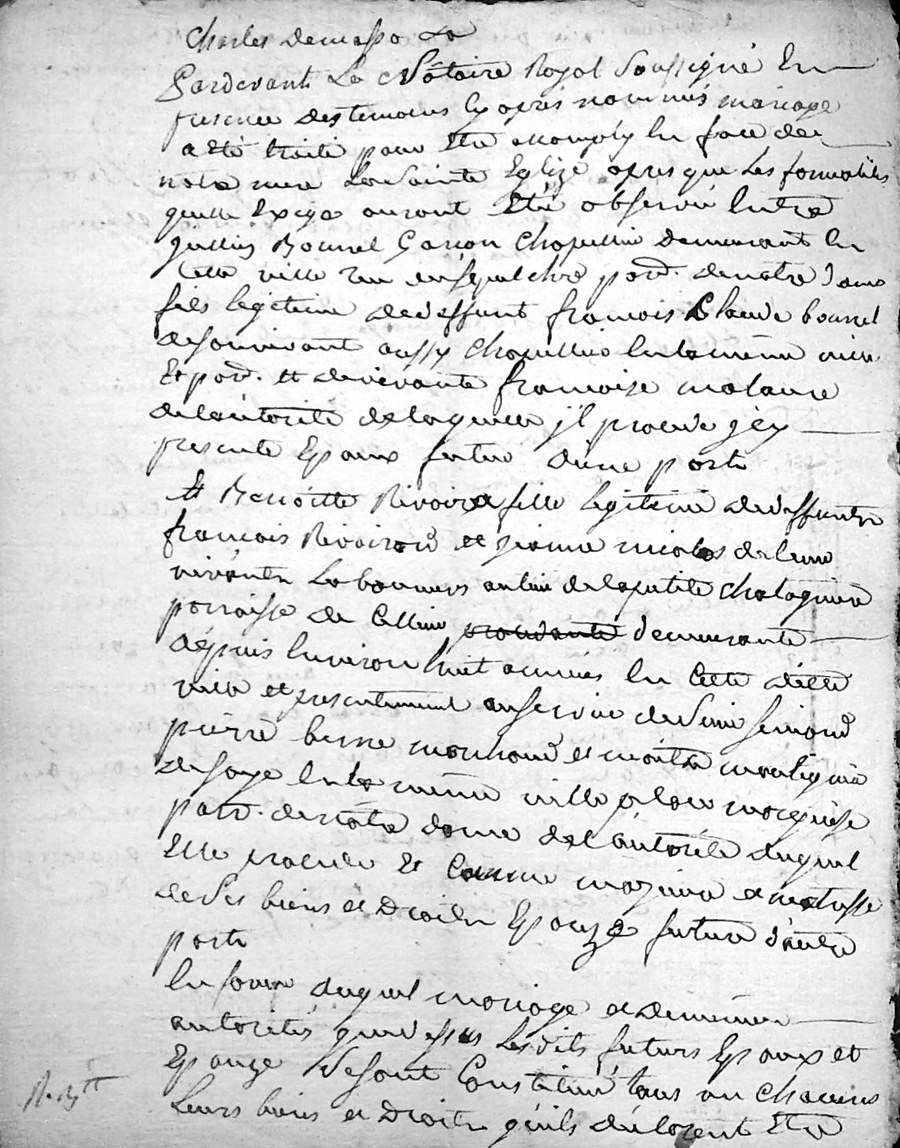 Charles Demasso
Pardevant Le Notaire Royal Soussigné En
presence des temoins cy aprés nommés mariage
a eté traité pour Etre accomply En face de
notre mere La Sainte Eglize apres que Les formalités
quelle Exige auront Eté observé Entre
Bonnel Garcon Chapellier demeurant En
cette ville rue du sepulchre par. de notre dame
fils legitime de deffunt francois Claude bonnel
de son vivant aussy Chapellier En la même ville
Et par. et de vivante francoise
de l'autorité de laquelle jl procede
presente Epoux futur d'une part
Et Benoitte Rivoire fille legitime de deffuntre
francois Rivoire et jeanne nicolas de leur
vivants Laboureurs au lieu de la petite Chatagniere
parroisse de demeurante
depuis Environ huit années En Cette ditte
ville et presentement au service de Sieur
pierre marchand et maitre
de soye En la même ville place
parr. de notre dame de l'autorité duquel
Elle procede Et Comme majeure et maitresse
de Ses biens et Droits Epouze future d'autre
part
En faveur duquel mariage et de memes
autorités que dessus Lesdits futurs Epoux et
Epouze Se sont Constitués tous un Chacuns
Leurs biens et Droits qu'ils déclarent Etre